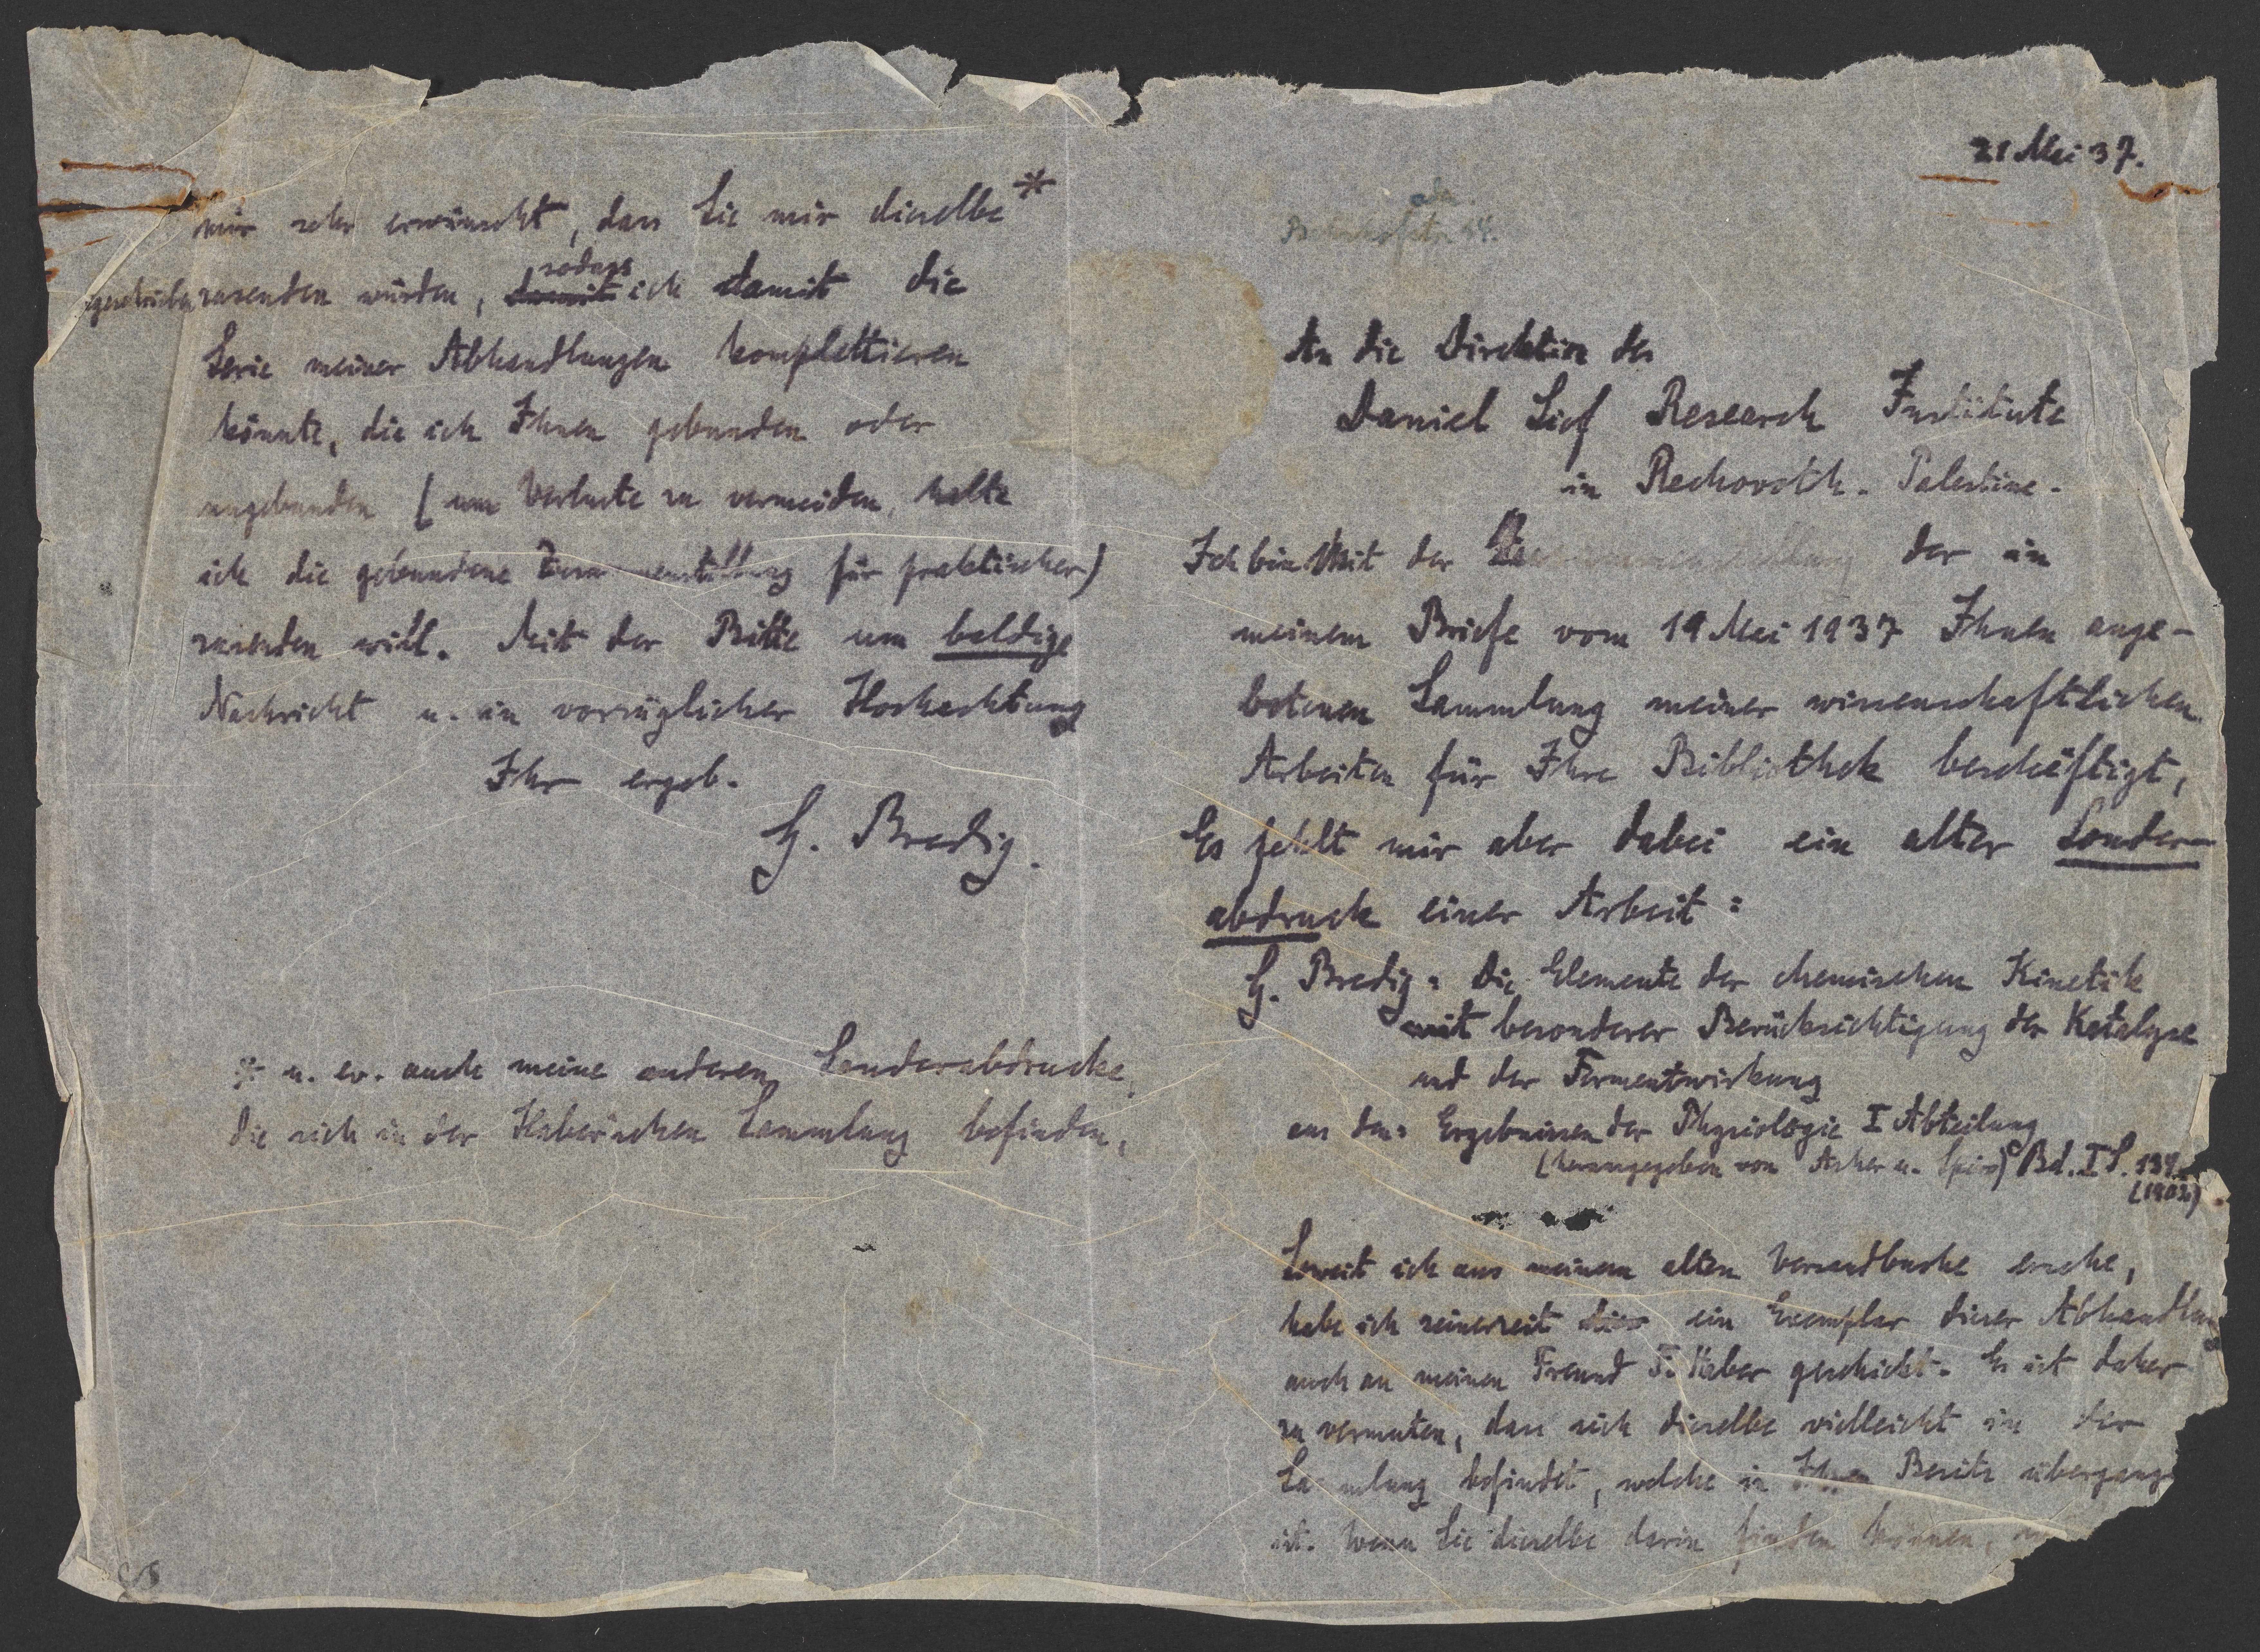 21 Mai 37.
Bahnhofstr. 44.
An die Direktion des
Daniel Sief Research Institute
in Rechovoth. Palestine.
Ich bin mit der Zusammenstellung der in
meinem Briefe vom 19 Mai 1937 Ihnen ange-
botenen Sammlung meiner wissenschaftlichen
Arbeiten für Ihre Bibliothek beschäftigt,
Es fehlt mir aber dabei ein alter Sonder-
abdruck einer Arbeit:
G. Bredig: Die Elemente der chemischen Kinetik
mit besonderer Berücksichtigung der Katalyse
und der Fermentwirkung
aus den: Ergebnissen der Physiologie I Abteilung
(herausgegeben von Asher u. Spiro) Bd. I S. 139.
(1902)
Soweit ich aus meinem alten Versandbuche ersehe,
habe ich seinerzeit ein Exemplar dieser Abhandlung
auch an meinen Freund F. Haber geschickt. Es ist daher
zu vermuten, dass sich dieselbe vielleicht in der
Sammlung befindet, welche in Ihren Besitz übergang
ist. Wenn Sie dieselbe darin finden können,
mir sehr erwünscht, dass Sie mir dieselbe*
sodass
zusenden würden, damit ich damit die
Serie meiner Abhandlungen komplettieren
könnte, die ich Ihnen gebunden oder
ungebunden (um Verluste zu vermeiden, halte
ich die gebundene Zusammenstellung für praktischer)
zusenden will. Mit der Bitte um baldige
Nachricht u. in vorzüglicher Hochachtung
Ihr ergeb.
G. Bredig.
* u. ev. auch meine anderen Sonderabdrucke,
die sich in der Haber'schen Sammlung befinden,